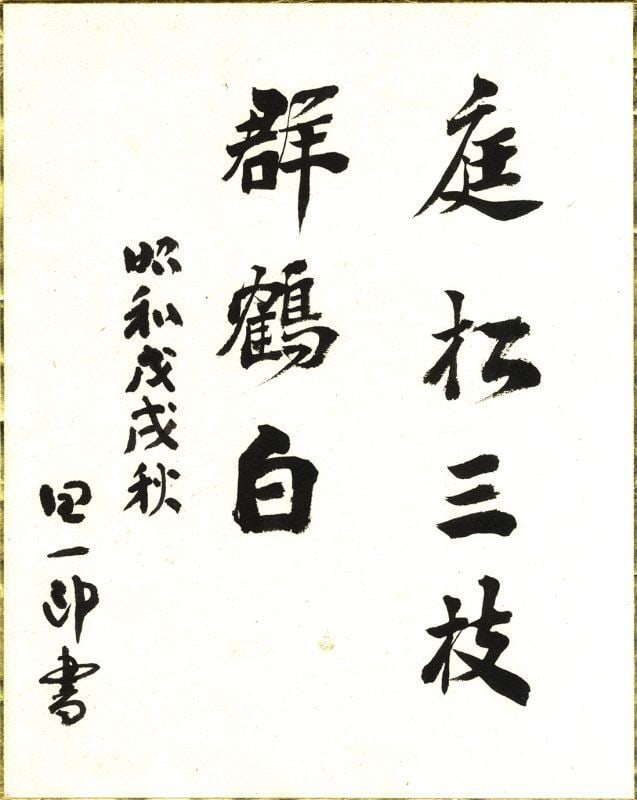 庭松三枝
群鶴白
昭和戊戌秋
一郎書